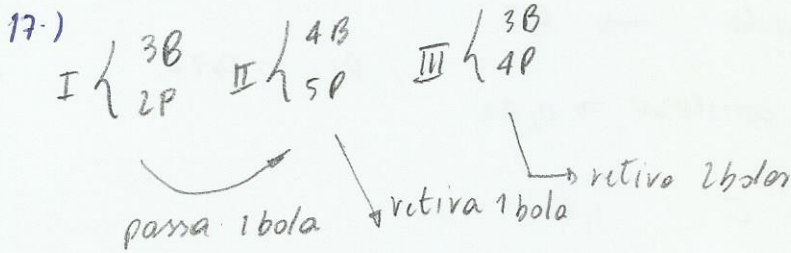 17-)
I { 3B 2P II { 4B 5P III { 3B 4P
passa 1 bola retira 1 bola retiro 2 bolas